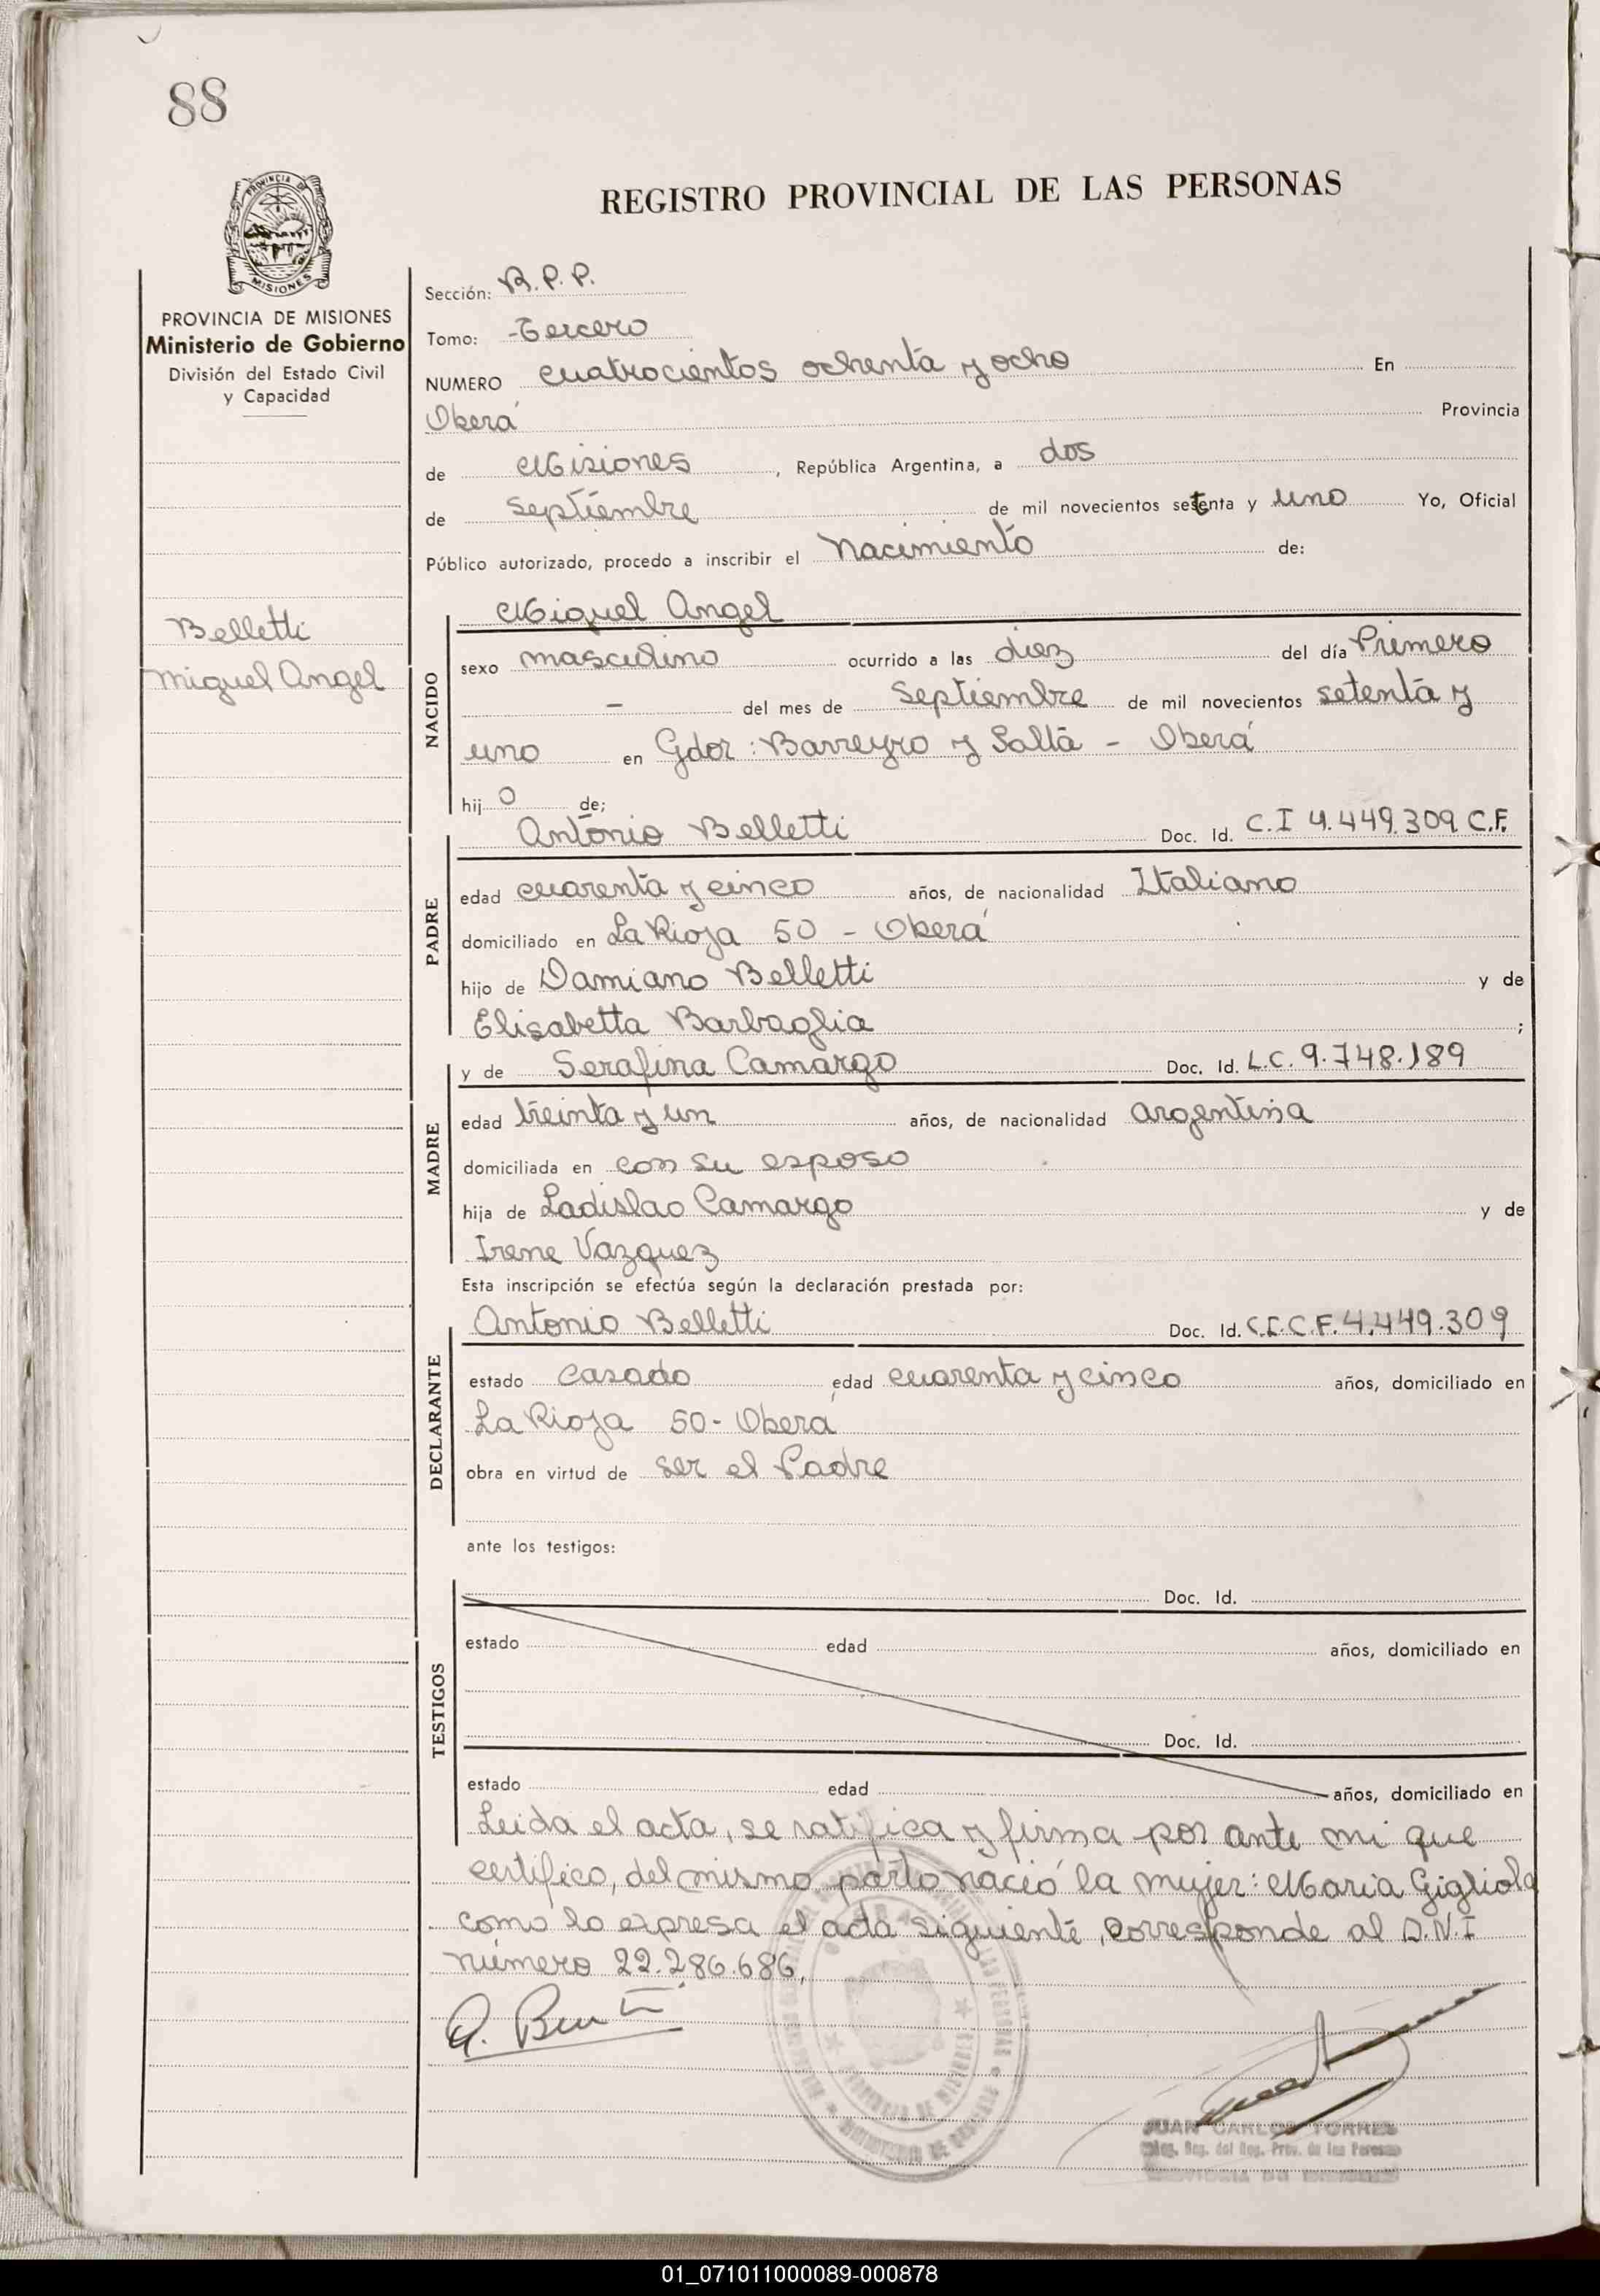 88
PROVINCIA DE
MISIONES
REGISTRO PROVINCIAL DE LAS PERSONAS
PROVINCIA DE MISIONES
Ministerio de Gobierno
División del Estado Civil
y Capacidad
Belletti
Miguel Angel
Sección: R.P.P.
Tomo: -Tercero
NUMERO cuatrocientos ochenta y ocho En
Oberá Provincia
de Misiones , República Argentina, a dos
de Septiembre de mil novecientos setenta y uno Yo, Oficial
Público autorizado, procedo a inscribir el Nacimiento de:
NACIDO
Miguel Angel
sexo masculino ocurrido a las diez del día Primero
- del mes de Septiembre de mil novecientos setenta y
uno en Gdor: Barreyro y Salta - Oberá
hij o de;
PADRE
Antonio Belletti Doc. Id. C.I 4.449.309 C.F.
edad cuarenta y cinco años, de nacionalidad Italiano
domiciliado en La Rioja 50 - Oberá
hijo de Damiano Belletti y de
Elisabetta Barbaglia ;
MADRE
y de Serafina Camargo Doc. Id. L.C. 9.748.189
edad treinta y un años, de nacionalidad argentina
domiciliada en con su esposo
hija de Ladislao Camargo y de
Irene Vazquez
Esta inscripción se efectúa según la declaración prestada por:
DECLARANTE
Antonio Belletti Doc. Id. C.I.C.F. 4.449.309
estado casado edad cuarenta y cinco años, domiciliado en
La Rioja 50- Oberá
obra en virtud de ser el Padre
ante los testigos:
TESTIGOS
Doc. Id.
estado edad años, domiciliado en
Doc. Id.
estado edad años, domiciliado en
Leida el acta, se ratifica y firma por ante mi que
certifico, del mismo parto nació la mujer: Maria Gigliola
como lo expresa el acta siguiente, corresponde al D.N.I
número 22.286.686,
JUAN CARLOS TORRES
Reg. del Reg. Prov. de las Personas
01_071011000089-000878